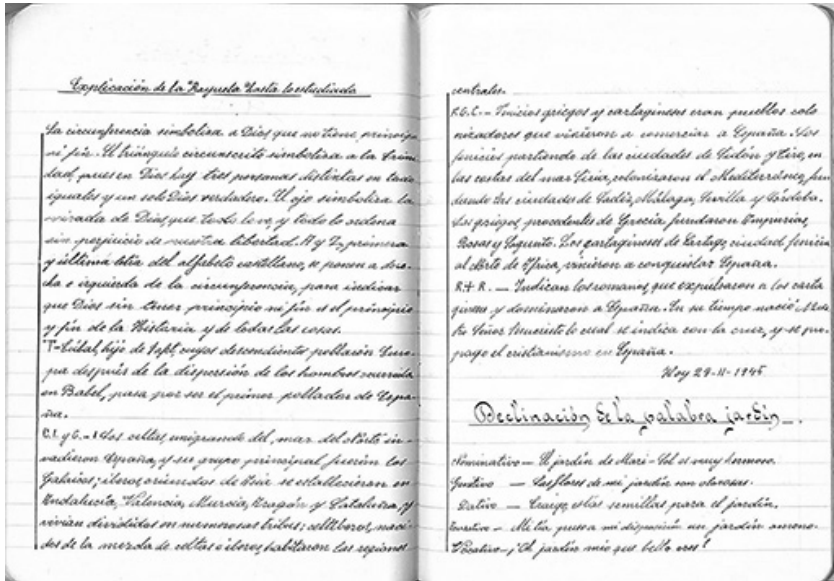 Explicación de la "Raqueta" hasta lo estudiado
La circunferencia simboliza a Dios que no tiene principio
ni fin. El triángulo circunscrito simboliza a la Trini
dad, pues en Dios hay tres personas distintas en todo
iguales y un solo Dios verdadero. El ojo simboliza la
mirada de Dios, que todo lo ve, y todo lo ordena
sin perjuicio de nuestra libertad. A y Z, primera
y última letra del alfabeto castellano, se ponen a dere-
cha e izquierda de la circunferencia, para indicar
que Dios sin tener principio ni fin es el principio
y fin de la Historia y de todas las cosas.
T-Túbal, hijo de Jafet, cuyos descendientes poblaron Euro-
pa después de la dispersión de los hombres ocurrida
en Babel, pasa por ser el primer poblador de Espa-
ña.
C.I. y C.- Los celtas, emigrando del mar del Norte in-
vadieron España, y su grupo principal fueron los
Galaicos; iberos, oriundos de Asia se establecieron en
Andalucía, Valencia, Murcia, Aragón y Cataluña, y
vivían divididos en numerosas tribus; celtíberos, naci-
dos de la mezcla de celtas e iberos, habitaron las regiones
centrales.
F.G.C.- Fenicios griegos y cartagineses eran pueblos colo
nizadores que vinieron a comerciar a España. Los
fenicios partiendo de las ciudades de Sidón y Tiro, en
las costas del mar Siria, colonizaron el Mediterráneo, fun
dando las ciudades de Cádiz, Málaga, Sevilla y Córdoba.
Los griegos, procedentes de Grecia fundaron Ampurias,
Rosas y Sagunto. Los cartagineses de Cartago, ciudad fenicia
al Norte de África, vinieron a conquistar España.
R+R. — Indican los romanos, que expulsaron a los carta
gineses y dominaron a España. En su tiempo nació Nues
tro Señor Jesucristo lo cual se indica con la cruz, y se pro-
pagó el cristianismo en España.
Hoy 29-11-1945
Declinación de la palabra jardín.
Nominativo — El jardín de Mari-Sol es muy hermoso.
Genitivo — Las flores de mi jardín son olorosas.
Dativo — Traigo estas semillas para el jardín.
— Mi tía puso a mi disposición un jardín ameno.
Vocativo — ¡Oh jardín mío que bello eres!